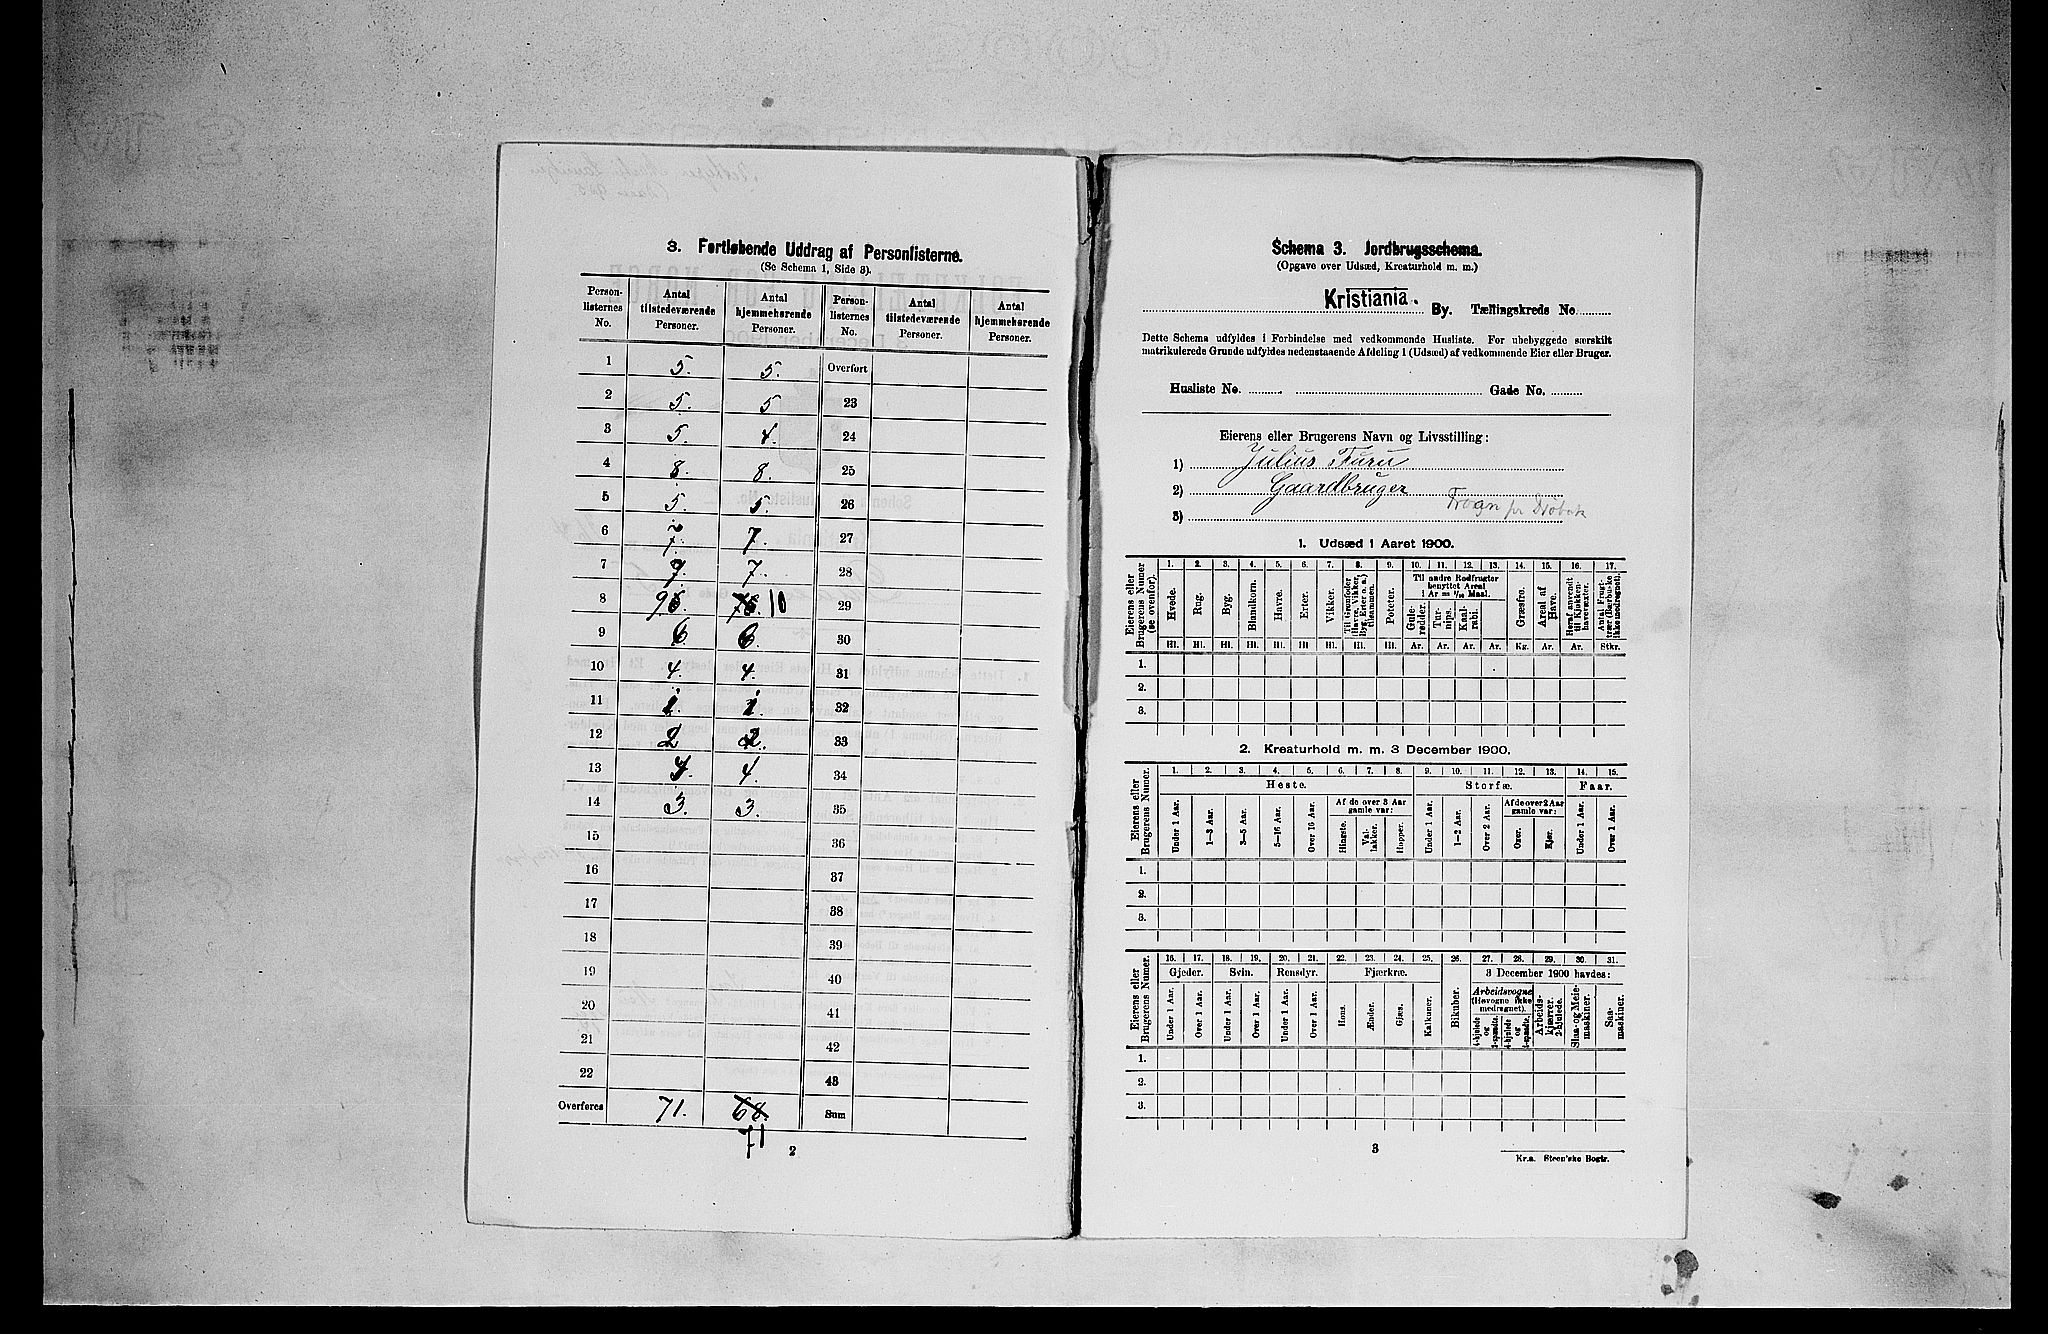 3. Fortløbende Uddrag af Personlisterne.
(Se Schema 1, Side 3).
Person-listernes No. | Antal tilstedeværende Personer. | Antal hjemmehørende Personer. | Person-listernes No. | Antal tilstedeværende Personer. | Antal hjemmehørende Personer.
1 5. 5. Overført
2 5. 5 23
3 5. 4. 24
4 8. 8. 25
5 5. 5. 26
6 7. 7. 27
7 9. 7. 28
8 10 29
9 6 6. 30
10 4. 4. 31
11 1. 1. 32
12 2 2. 33
13 4. 4. 34
14 3. 3. 35
15 36
16 37
17 38
18 39
19 40
20 41
21 42
22 43
Overføres 71. 68. Sum
71
2
Schema 3. Jordbrugsschema.
(Opgave over Udsæd, Kreaturhold m. m.)
Kristiania. By. Tællingskreds No.
Dette Schema udfyldes i Forbindelse med vedkommende Husliste. For ubebyggede særskilt
matrikulerede Grunde udfyldes nedenstaaende Afdeling 1 (Udsæd) af vedkommende Eier eller Bruger.
Husliste No. Gade No.
Eierens eller Brugerens Navn og Livsstilling:
1) Julius Furu
2) Gaardbruger
3) Frogn pr Drøbak
1. Udsæd i Aaret 1900.
1. 2. 3. 4. 5. 6. 7. 8. 9. 10. 11. 12. 13. 14. 15. 16. 17.
Eierens eller Brugerens Numer (se ovenfor). | Hvede. | Rug. | Byg. | Blandkorn. | Havre. | Erter. | Vikker. | Til Grønfoder (Havre, Vikker, Byg, Erter o. a.) tilsammen. | Poteter. | Til andre Rodfrugter benyttet Areal i Ar = 1/10 Maal. | Gule-rødder. | Tur-nips. | Kaal-rabi. | Græsfrø. | Areal af Have. | Heraf anvendt til Kjøkken-havevæxter. | Antal Frugt-trær (Bærbuske ikke medregnet).
Hl. Hl. Hl. Hl. Hl. Hl. Hl. Hl. Hl. Ar. Ar. Ar. Ar. Kg. Ar. Ar. Stkr.
1.
2.
3.
2. Kreaturhold m. m. 3 December 1900.
1. 2. 3. 4. 5. 6. 7. 8. 9. 10. 11. 12. 13. 14. 15.
Eierens eller Brugerens Numer. | Heste. | Storfæ. | Faar.
Af de over 3 Aar gamle var: | Af de over 2 Aar gamle var:
Under 1 Aar. | 1-3 Aar. | 3-5 Aar. | 5-16 Aar. | Over 16 Aar. | Hingste. | Val-lakker. | Hopper. | Under 1 Aar. | 1-2 Aar. | Over 2 Aar. | Oxer. | Kjør. | Under 1 Aar. | Over 1 Aar.
1.
2.
3.
16. 17. 18. 19. 20. 21. 22. 23. 24. 25. 26. 27. 28. 29. 30. 31.
Eierens eller Brugerens Numer. | Gjeder. | Svin. | Rensdyr. | Fjærkræ. | Bikuber. | 3 December 1900 havdes:
Arbeidsvogne (Høvogne ikke medregnet).
Under 1 Aar. | Over 1 Aar. | Under 1 Aar. | Over 1 Aar. | Under 1 Aar. | Over 1 Aar. | Høns. | Ænder. | Gjæs. | Kalkuner. | 4-hjulede og 2-spændte. | 4-hjulede og 1-spændte. | Arbeids-kjærrer, 2-hjulede. | Slaa- og Meie-maskiner. | Saa-maskiner.
1.
2.
3.
3
Kr.a. Steen'ske Bogtr.